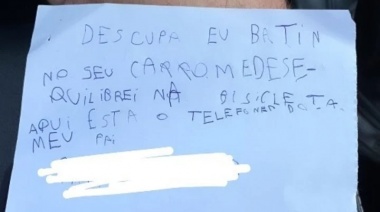 DESCUPA EU BATIN
NO SEU CARROMEDESE-
QUILIBREI NA BISICLETA.
AQUI ESTA O TELEFONER DO
MEU PAI